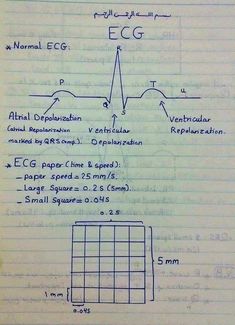 بسم الله الرحمن الرحيم
ECG
* Normal ECG:
R
P
T
u
Q
S
Atrial Depolarization
(atrial Repolarization
marked by QRS comp.)
Ventricular
Depolarization
Ventricular
Repolarization.
* ECG paper (time & speed):
- paper speed = 25 mm/s.
- Large Square = 0.2 S (5mm).
- Small square = 0.04S
0.2S
5mm
1mm
0.04S